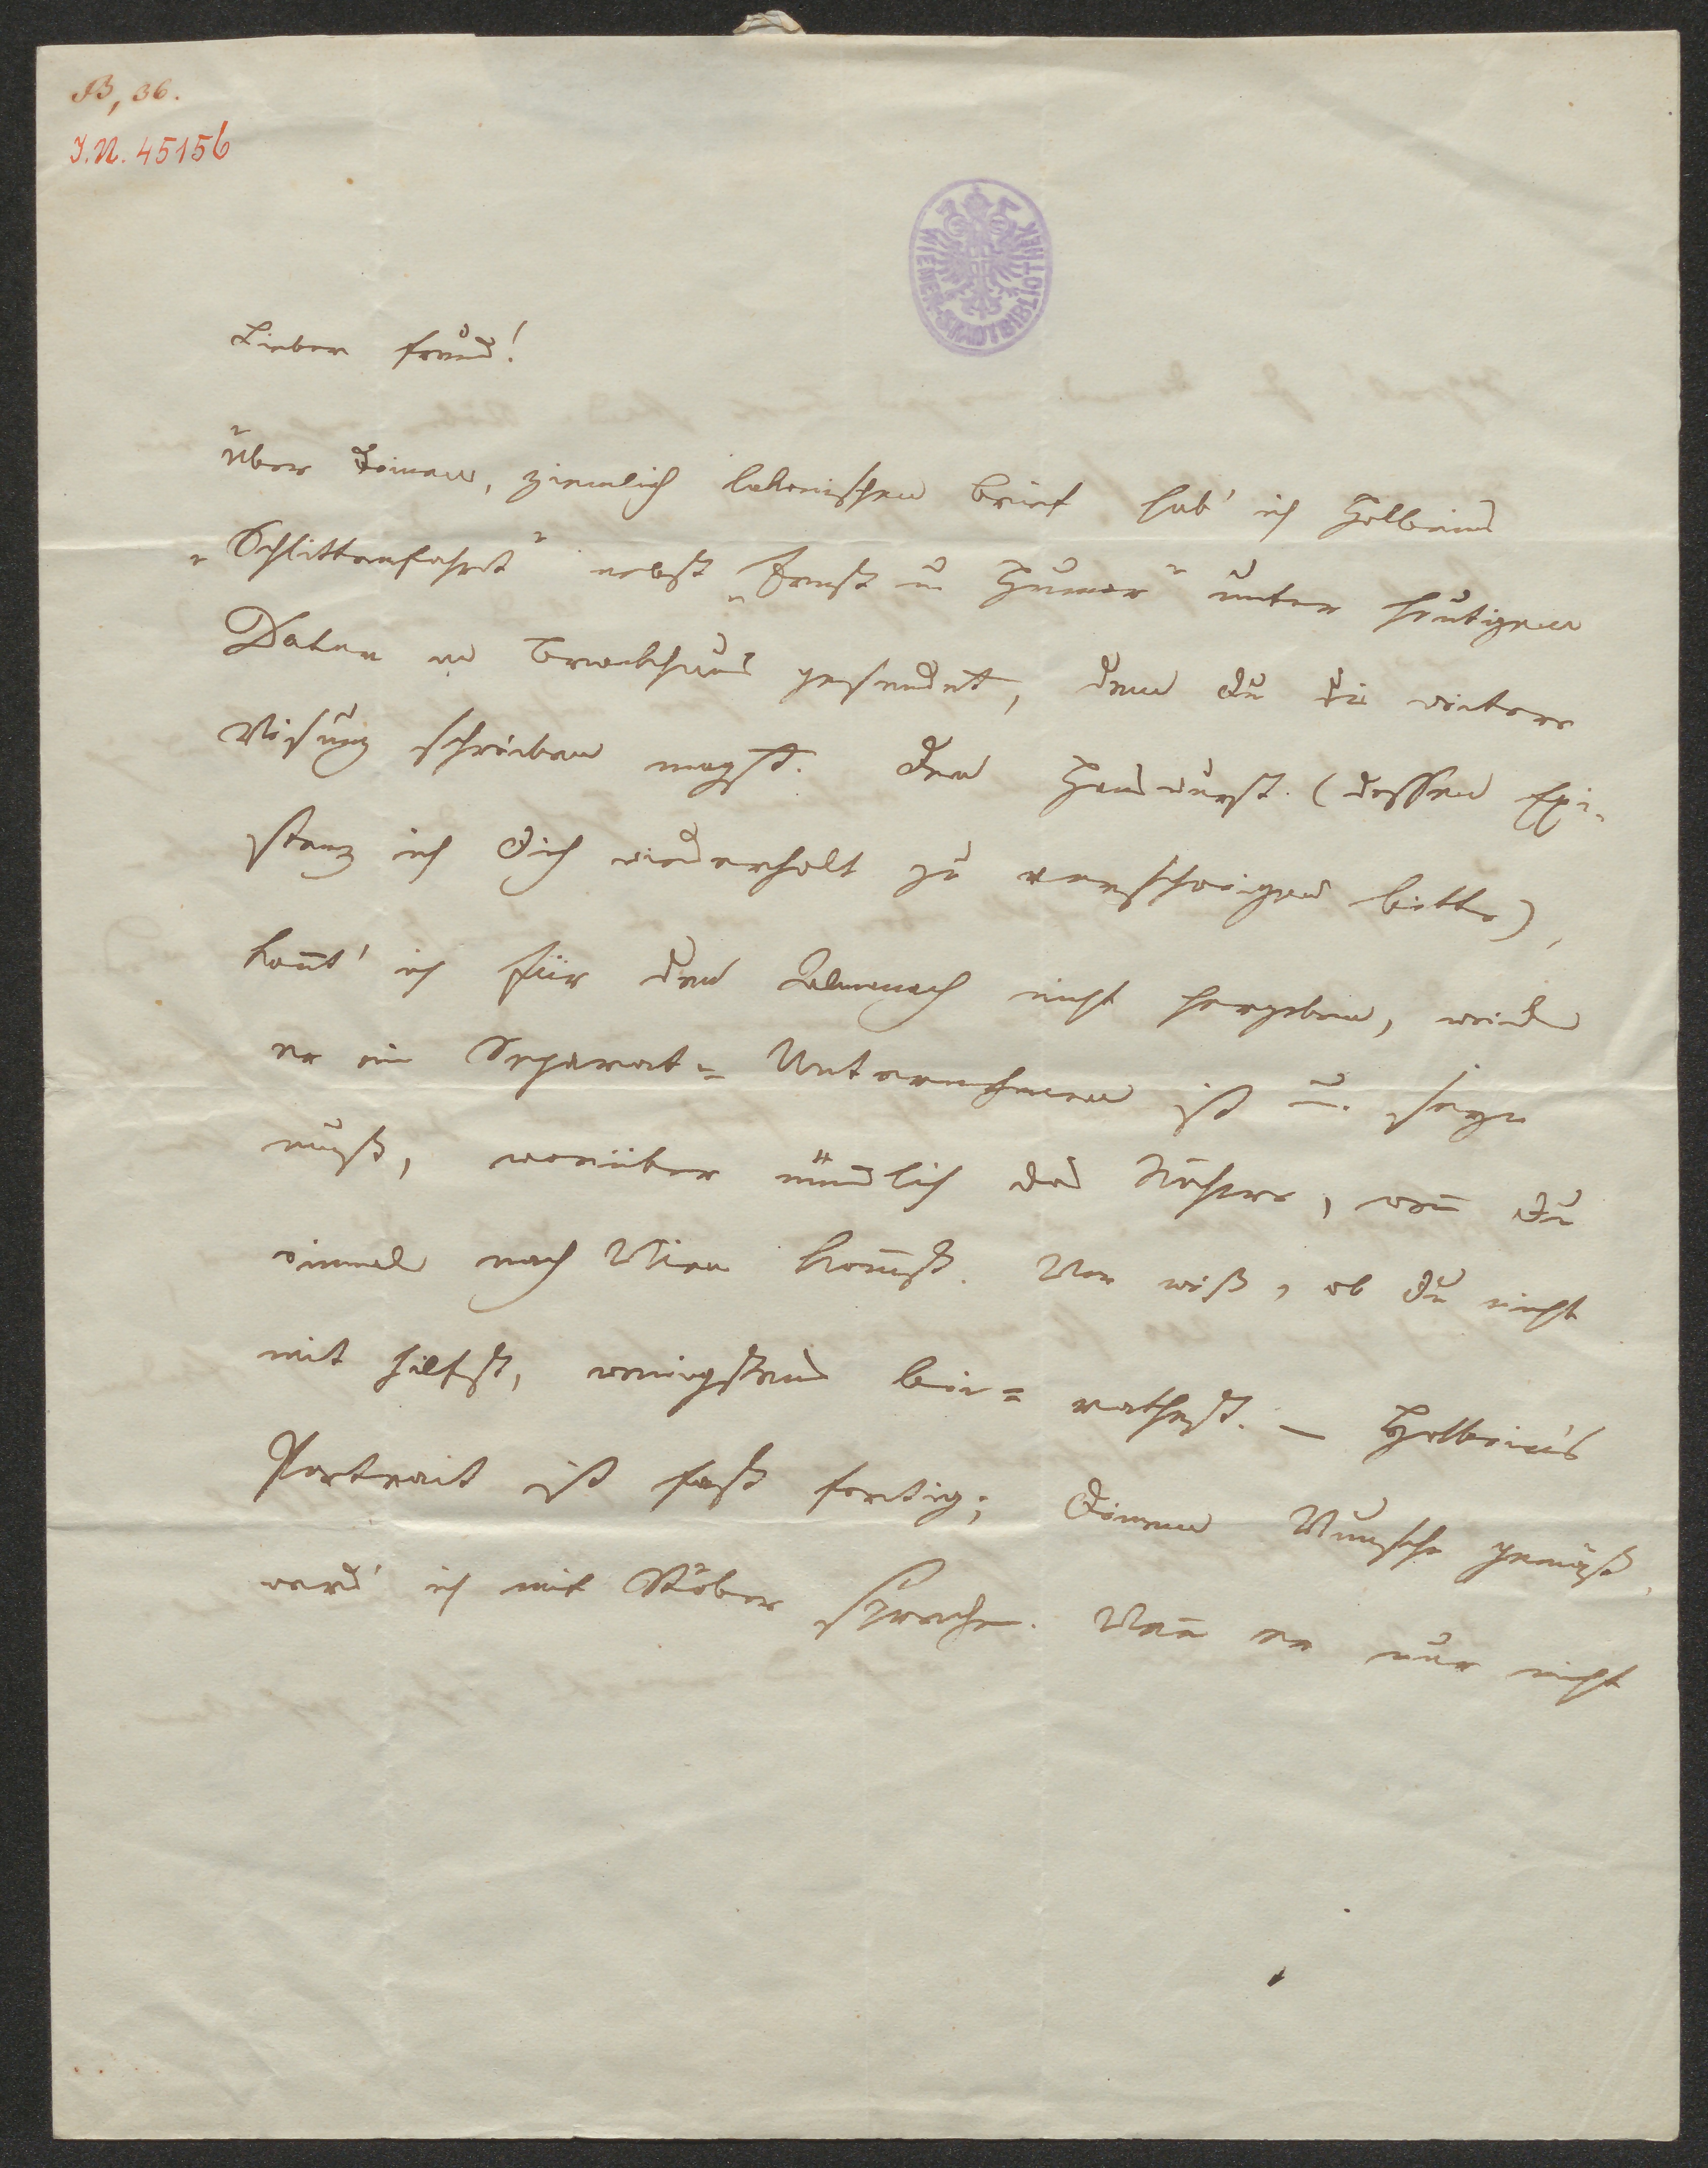 B, 36.
I.N. 45156
WIENER STADTBIBLIOTHEK
Lieber Freund!
Über Deinen, ziemlich lakonischen Brief hab' ich Holbeins
„Schlittenfahrt" nebst „Ernst u Humor" unter heutigem
Datum an gesendet, dem Du die weitere
Weisung schreiben magst. Den Hanswurst (dessen Exi-
stenz ich Dich wiederholt zu verschweigen bitte),
kannt' ich für den Almanach nicht hergeben, weil
er ein Separat-Unternehmen ist u. seyn
muß, worüber mündlich das Nähere, wenn Du
einmal nach Wien kommst. Wer weiß, ob Du nicht
mit hilfst, wenigstens bei-rathest. – Holbein's
Portrait ist fast fertig; Deinem Wunsche gemäß,
werd' ich mit Stöber sprechen. Wenn er nur nicht